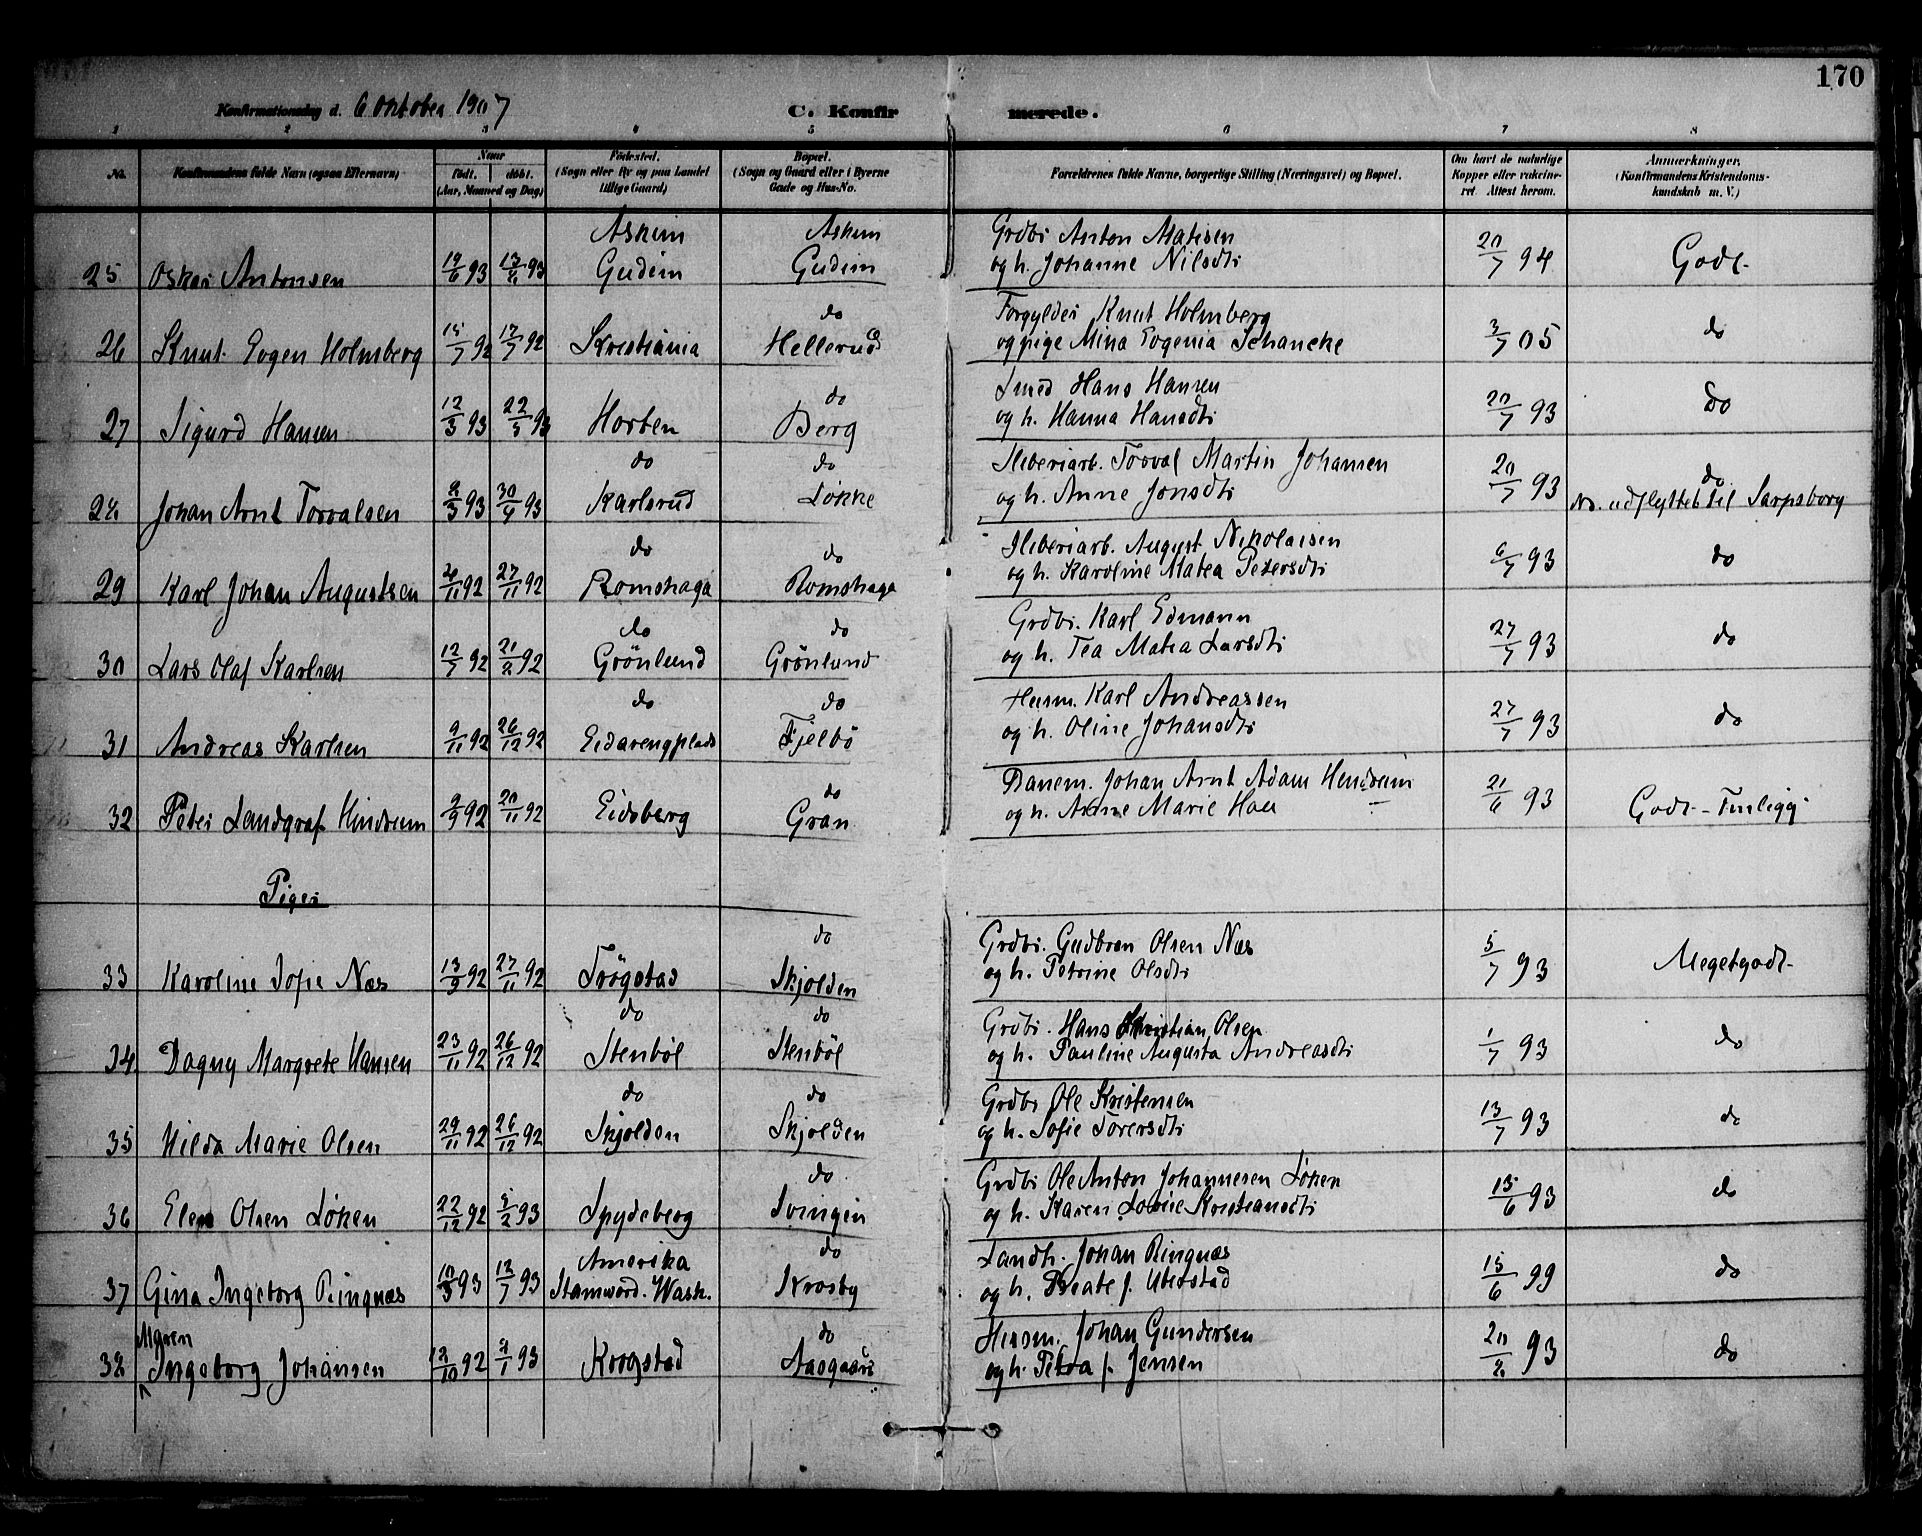 170
Konfirmationsdag d. 6 Oktober 1907 C. Konfirmerede.
1 2 3 4 5 6 7 8
No. Konfirmandens fulde Navn (ogsaa Efternavn) Naar født. døbt. (Aar, Maaned og Dag) Fødested. (Sogn eller By og paa Landet tillige Gaard) Bopæl. (Sogn og Gaard eller i Byerne Gade og Hus-No. Forældrenes fulde Navne, borgerlige Stilling (Næringsvei) og Bopæl. Om havt de naturlige Kopper eller vakcineret. Attest herom. Anmærkninger. (Konfirmandens Kristendomskundskab m. V.)
Askim Askim Grdbr Anton Matisen
25 Oskar Antonsen 19/6 93 13/8 93 Gudim Gudim og h. Johanne Nilsdtr 20/7 94 Godt
do Forgylder Knut Holmberg
26 Knut Eogen Holmberg 15/7 92 17/7 92 Kristiania Hellerud og pige Mina Eogenia Schancke 3/7 05 do
do Smed Hans Hansen
27 Sigurd Hansen 12/3 93 22/5 93 Horten Berg og h. Hanna Hansdtr 20/7 93 do
do do Sliberiarb. Torval Martin Johansen
28 Johan Arnt Torvalsen 8/3 93 30/4 93 Karlsrud Løkke og h. Anne Jonsdtr 20/7 93 do
No. udflyttet til Sarpsborg
do do Sliberiarb. August Nikolaisen
29 Karl Johan Augustsen 4/11 92 27/11 92 Romshaga Romshaga og h. Karoline Matea Petersdtr 6/7 93 do
do do Grdbr. Karl Edmann
30 Lars Olaf Karlsen 12/7 92 21/8 92 Grönlund Grönlund og h. Tea Matea Larsdtr 27/7 93 do
do do Husm. Karl Andreassen
31 Andreas Karlsen 9/11 92 26/12 92 Eidarengplads Fjelbö og h. Oline Johansdtr 27/7 93 do
do Banem. Johan Arnt Adam Hendrum
32 Peter Landgraf Hindrum 2/9 92 20/11 92 Eidsberg Gran og h. Anne Marie Hou 21/6 93 Godt
Piger
do Grdbr. Gudbran Olsen Næs
33 Karoline Sofie Næs 13/9 92 27/11 92 Trögstad Skjolden og h. Petrine Olsdtr 5/7 93 Megetgodt
do do Grdbr. Hans Kristian Olsen
34 Dagny Margrete Hansen 23/11 92 26/12 92 Stenbøl Stenbøl og h. Pauline Augusta Andreasdtr 1/7 93 do
do do Grdbr Ole Kristensen
35 Hilda Marie Olsen 29/11 92 26/12 92 Skjolden Skjolden og h. Sofie Torersdtr 13/7 93 do
do Grdbr Ole Anton Johannesen Löken
36 Elen Olsen Löken 22/12 92 5/2 93 Spydeberg Svingen og h. Karen Lovise Kristiansdtr 15/6 93 do
Amerika do Landh. Johan Ringnæs
37 Gina Ingeborg Ringnæs 10/3 93 12/7 93 Stanword. Wash. Krosby og h. Beate f. Uberstad 15/6 99 do
Maren do Husm. Johan Gundersen
38 Ingeborg Johansen 12/10 92 8/1 93 Krogstad Aasgaard og h. Petra f. Jensen 20/8 93 do